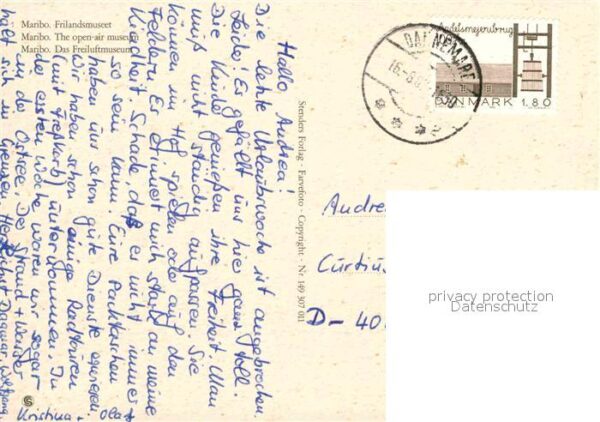 Maribo. Frilandsmuseet
Maribo. The open-air museum
Maribo. Das Freiluftmuseum
Hallo, Andrea!
Die letzte Urlaubswoche ist angebrochen.
Leider! Es gefällt uns hier ganz toll.
Die Kinder genießen ihre Freiheit. Man
muß nicht ständig aufpassen. Sie
können im Hof spielen oder auf den
Feldern. Es erinnert mich stark an meine
Kindheit. Schade, daß es nicht immer
so sein kann. Eure Packtaschen
haben uns schon gute Dienste erwiesen.
Wir haben schon einige Radtouren
(mit Freßkorb) unternommen. In
der ersten Woche waren wir sogar
in der Ostsee. Der Strand + Wasser
hielt sich in Grenzen. Herzlichst Dagmar, Wolfgang,
Kristina + Olaf
Stenders Forlag · Farvefoto · Copyright · Nr. 149 307 011
Andelsmejeribrug
DANMARK 1.80
DANNEMARE
Andrea
Curtius
D-40
privacy protection
Datenschutz